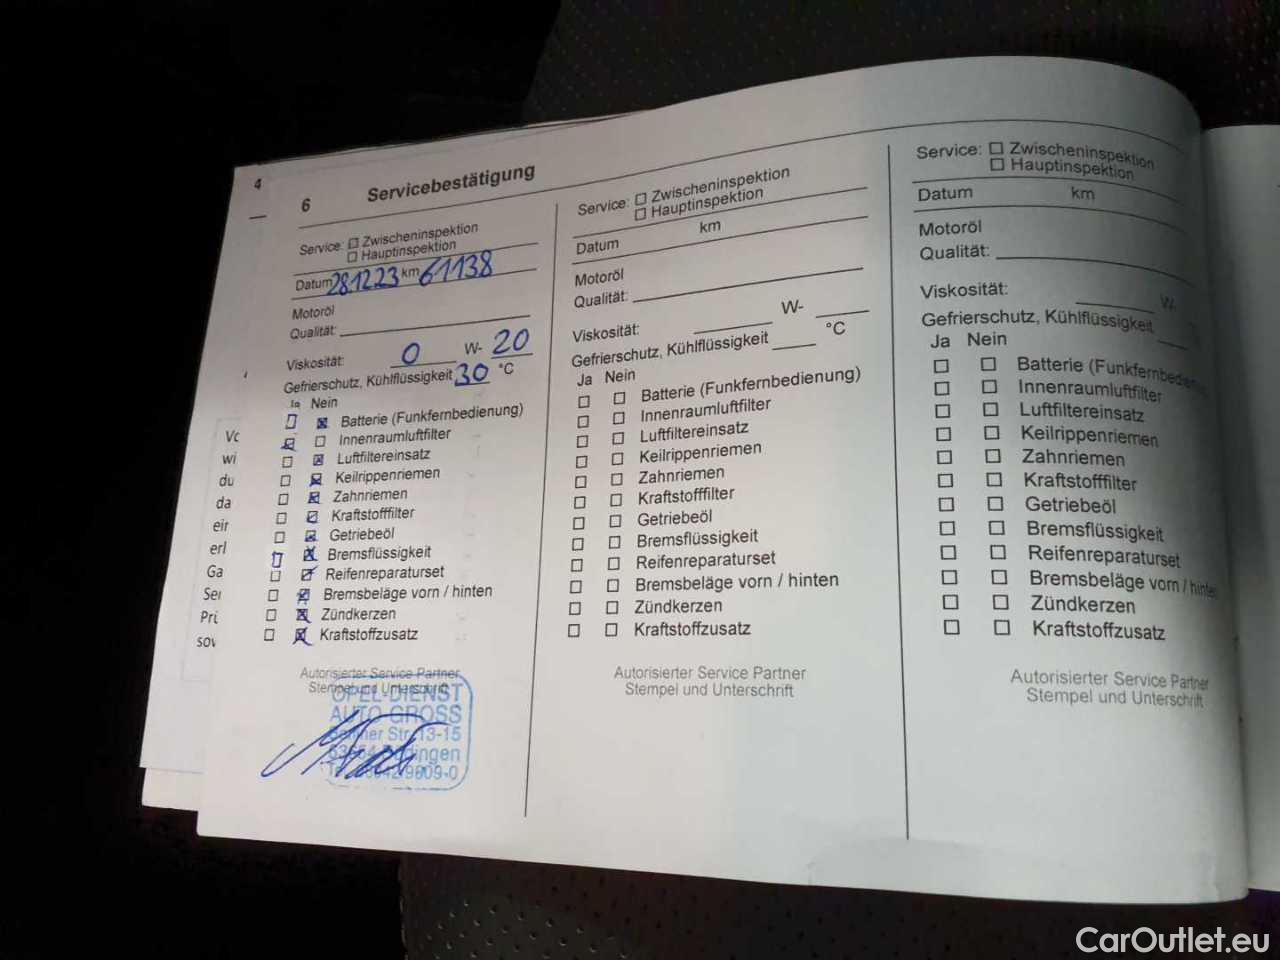 4
6 Servicebestätigung
Service: Zwischeninspektion
Hauptinspektion
Datum 28.12.23 km 61138
Motoröl
Qualität:
Viskosität: 0 W- 20
Gefrierschutz, Kühlflüssigkeit 30 °C
Ja Nein
Batterie (Funkfernbedienung)
Innenraumluftfilter
Luftfiltereinsatz
Keilrippenriemen
Zahnriemen
Kraftstofffilter
Getriebeöl
Bremsflüssigkeit
Reifenreparaturset
Bremsbeläge vorn / hinten
Zündkerzen
Kraftstoffzusatz
Autorisierter Service Partner
Stempel und Unterschrift
OPEL-DIENST
AUTO GROSS
Str. 13-15
Service: Zwischeninspektion
Hauptinspektion
Datum km
Motoröl
Qualität:
Viskosität: W-
Gefrierschutz, Kühlflüssigkeit °C
Ja Nein
Batterie (Funkfernbedienung)
Innenraumluftfilter
Luftfiltereinsatz
Keilrippenriemen
Zahnriemen
Kraftstofffilter
Getriebeöl
Bremsflüssigkeit
Reifenreparaturset
Bremsbeläge vorn / hinten
Zündkerzen
Kraftstoffzusatz
Autorisierter Service Partner
Stempel und Unterschrift
Service: Zwischeninspektion
Hauptinspektion
Datum km
Motoröl
Qualität:
Viskosität: W-
Gefrierschutz, Kühlflüssigkeit
Ja Nein
Batterie (Funkfernbedienung)
Innenraumluftfilter
Luftfiltereinsatz
Keilrippenriemen
Zahnriemen
Kraftstofffilter
Getriebeöl
Bremsflüssigkeit
Reifenreparaturset
Bremsbeläge vorn / hinten
Zündkerzen
Kraftstoffzusatz
Autorisierter Service Partner
Stempel und Unterschrift
Vo
wi
du
da
ein
erl
Ga
Ser
Prü
sov
CarOutlet.eu